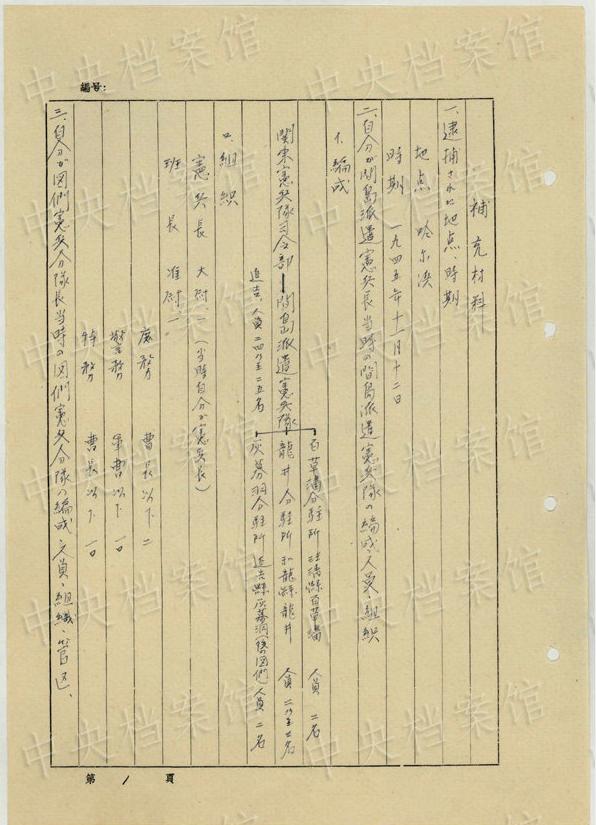 編号:
補充材料
一、逮捕された地点、時期
地点 哈尔滨
時期 一九四五年十一月十二日
二、自分が間島派遣憲兵長当時の間島派遣憲兵隊の編成、人員、組织
1. 編成
百草溝分駐所 汪清縣百草溝 人員 二名
関東憲兵隊司令部ー間島派遣憲兵隊 龍井分駐所 和龍縣龍井 人員 二乃至三名
延吉、人員二四乃至二五名 灰幕洞分駐所 延吉縣灰幕洞 図們 人員 二名
2. 組织
憲兵長 大尉一(当時自分が憲兵長)
班長 准尉一
庶務 曹長以下 二
警務 軍曹以下 一〇
特務 曹長以下 一〇
三、自分が図們憲兵分隊長当時の図們憲兵分隊の編成、人員、組織、管区、
第 1 頁
中央档案馆